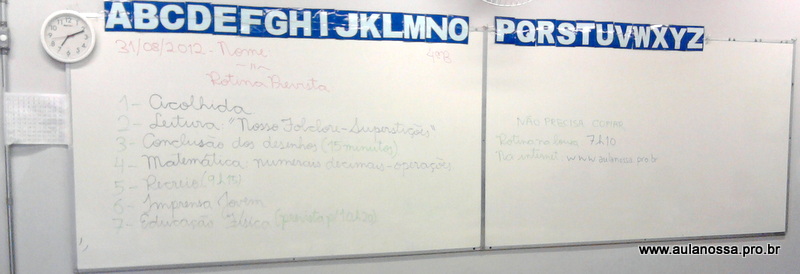 ABCDEFGHIJKLMNO
PQRSTUVWXYZ
31/08/2012 - Nome
4ºB
Rotina Prevista
1 - Acolhida
2 - Leitura: "Nosso Folclore - Superstições"
3 - Conclusão dos desenhos (15 minutos)
4 - Matemática: numerais decimais - operações
5 - Recreio (9h15)
6 - Imprensa Jovem
7 - Educação Física (prevista p/ 10h20)
NÃO PRECISA COPIAR
Rotina na lousa 7h10
Na internet www.aulanossa.pro.br
www.aulanossa.pro.br